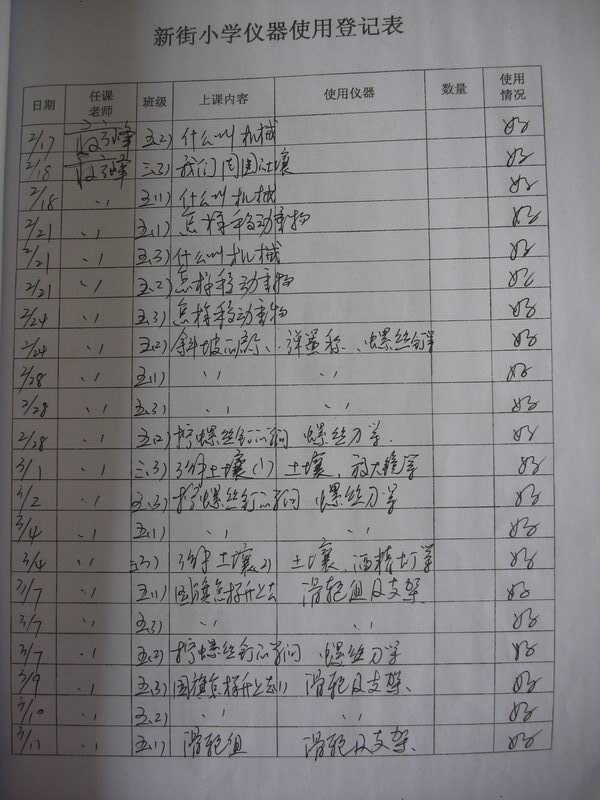 新街小学仪器使用登记表
日期 任课老师 班级 上课内容 使用仪器 数量 使用情况
2/17 五.2) 什么叫机械 好
2/18 三.3) 我们周围的土壤 好
2/18 〃 五.1) 什么叫机械 好
2/21 〃 五.1) 怎样移动重物 好
2/21 〃 五.3) 什么叫机械 好
2/21 〃 五.2) 怎样移动重物 好
2/24 〃 五.3) 怎样移动重物 好
2/24 〃 五.2) 斜坡的 弹簧称、螺丝钉等 好
2/28 〃 五.1) 〃 〃 好
2/28 〃 五.3) 〃 〃 好
2/28 〃 五.2) 拧螺丝钉的学问 螺丝刀等 好
3/1 〃 三.3) 了解土壤(1) 土壤、放大镜等 好
3/2 〃 五.3) 拧螺丝钉的学问 螺丝刀等 好
3/4 〃 五.1) 〃 〃 好
3/4 〃 三.3) 了解土壤(2) 土壤、酒精灯等 好
3/7 〃 五.1) 国旗怎样升上去 滑轮组及支架 好
3/7 〃 五.3) 〃 〃 好
3/7 〃 五.2) 拧螺丝钉的学问 螺丝刀等 好
3/9 〃 五.3) 国旗怎样升上去(1) 滑轮及支架 好
3/10 〃 五.2) 〃 〃 好
3/11 〃 五.1) 滑轮组 滑轮及支架 好